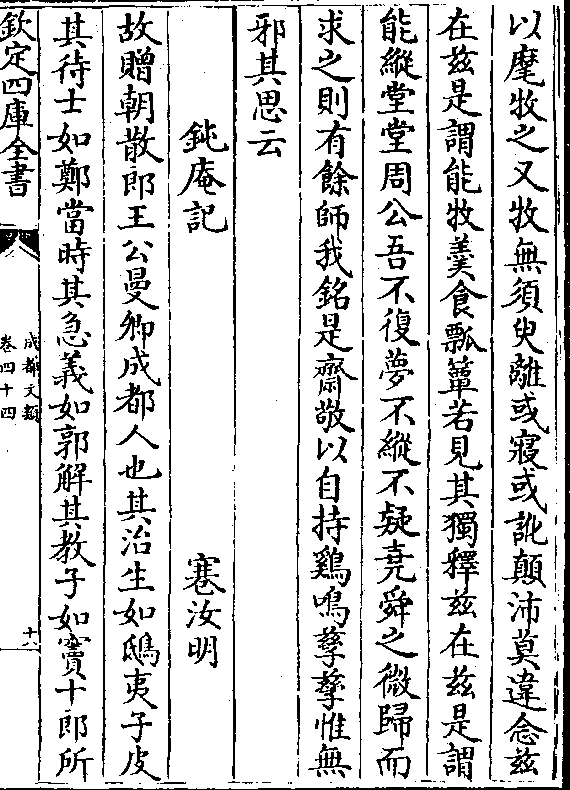 以麾牧之又牧無須臾離或寢或訛顛沛莫違念兹
在兹是謂能牧羮食瓢簞若見其獨釋兹在兹是謂
能縱堂堂周公吾不復夢不縱不疑堯舜之微歸而
求之則有餘師我銘是齋敬以自持鷄鳴孳孳惟無
邪其思云
鈍庵記　　　　　　　蹇汝明
故贈朝散郎王公曼卿成都人也其治生如鴟夷子皮
其待士如鄭當時其急義如郭解其教子如竇十郎所
欽定四庫全書
成都文類
卷四十四
十八